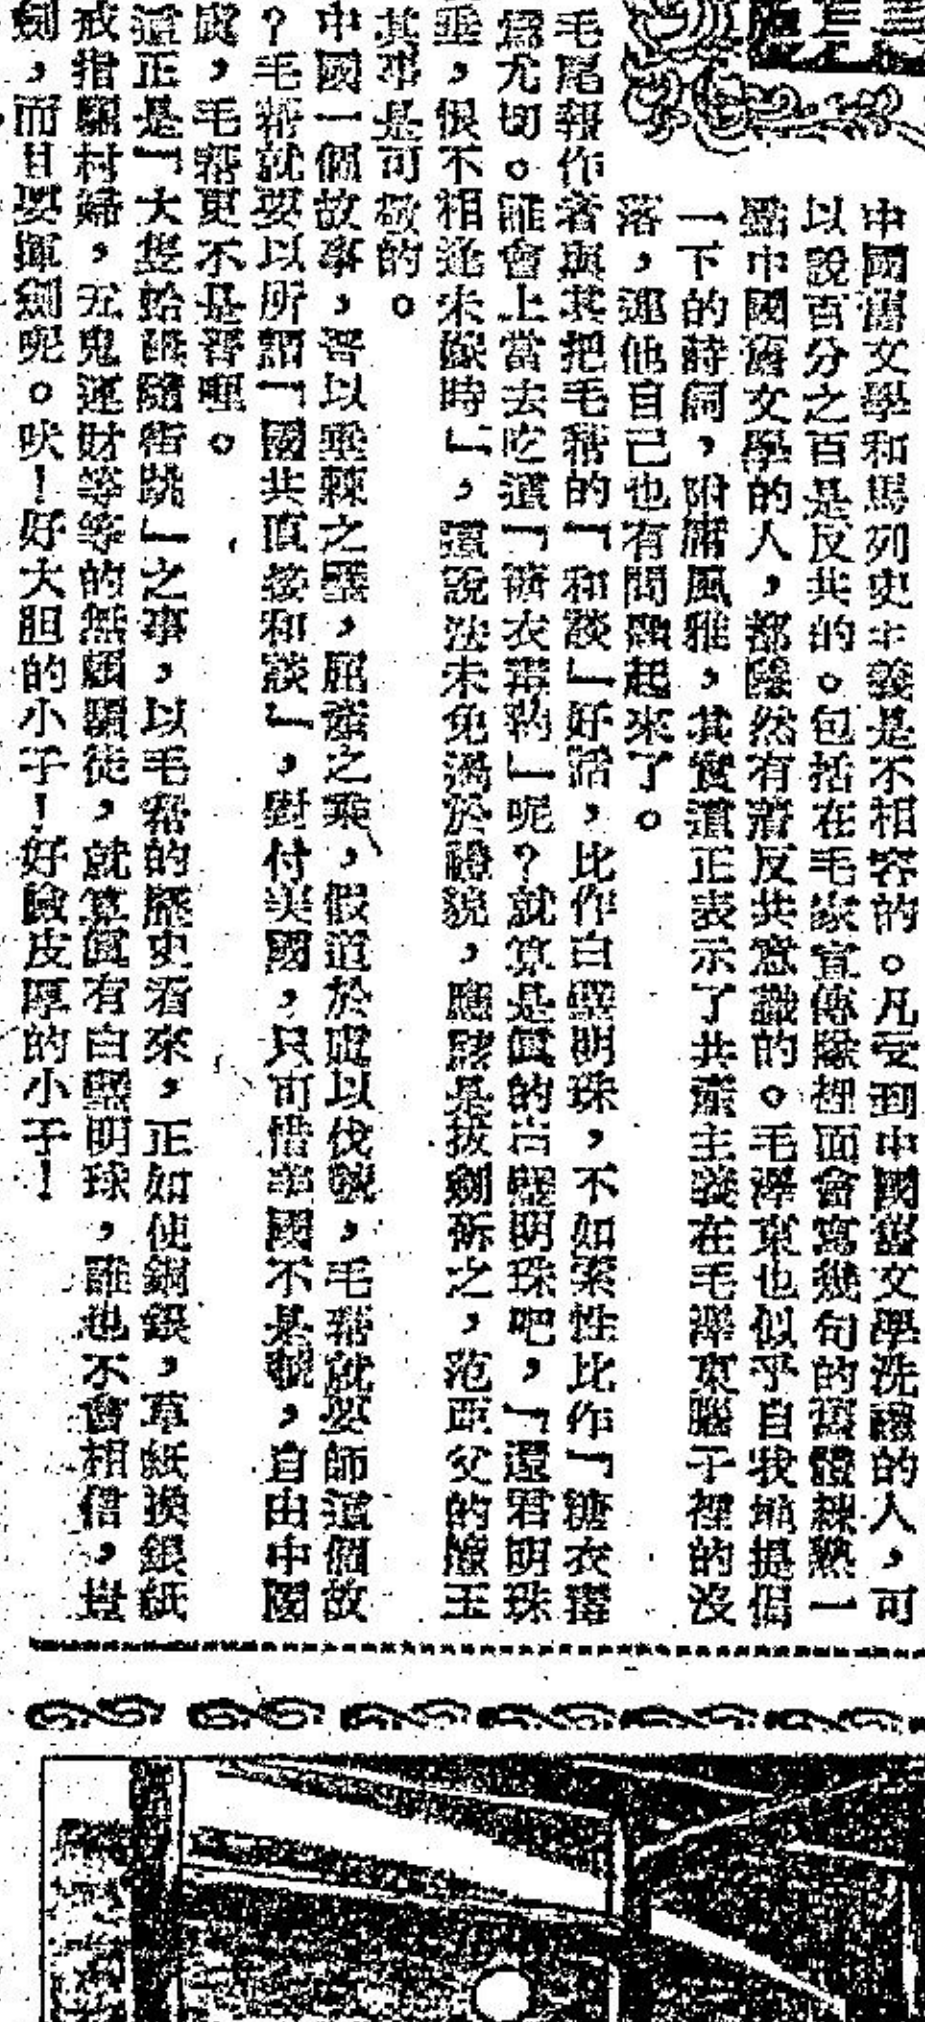 中國舊文學和馬列史主義是不相容的。凡受到中國舊文學洗禮的人,可
以說百分之百是反共的。包括在毛家宣傳隊裡面會寫幾句的舊體練熟一
點中國舊文學的人,都隱然有着反共意識的。毛澤東也似乎自我地提倡
一下的詩詞,附庸風雅,其實這正表示了共產主義在毛澤東腦子裡的沒
落,連他自己也有問題起來了。
毛尾報作者與其把毛幫的「和談」好話,比作白璧明珠,不如索性比作「糖衣毒
為尤切。誰會上當去吃這「糖衣毒藥」呢?就算是真的白璧明珠吧,「還君明珠
垂,恨不相逢未嫁時」,這說法未免過於禮貌,應該是拔劍斫之,范亞父的撞玉
其事是可敬的。
中國一個故事,晉以垂棘之璧,屈產之乘,假道於虞以伐虢,毛幫就要師這個故
?毛幫就要以所謂「國共直接和談」,對付美國,只可惜美國不是虢,自由中國
虞,毛幫更不是晉哩。
這正是「大隻蛤乸隨街跳」之事,以毛幫的歷史看來,正如使銅銀,草紙換銀紙
戒指騙村婦,五鬼運財等等的無賴騙徒,就算真有白璧明珠,誰也不會相信,豈
劍,而且要揮劍呢。吠!好大胆的小子!好臉皮厚的小子!